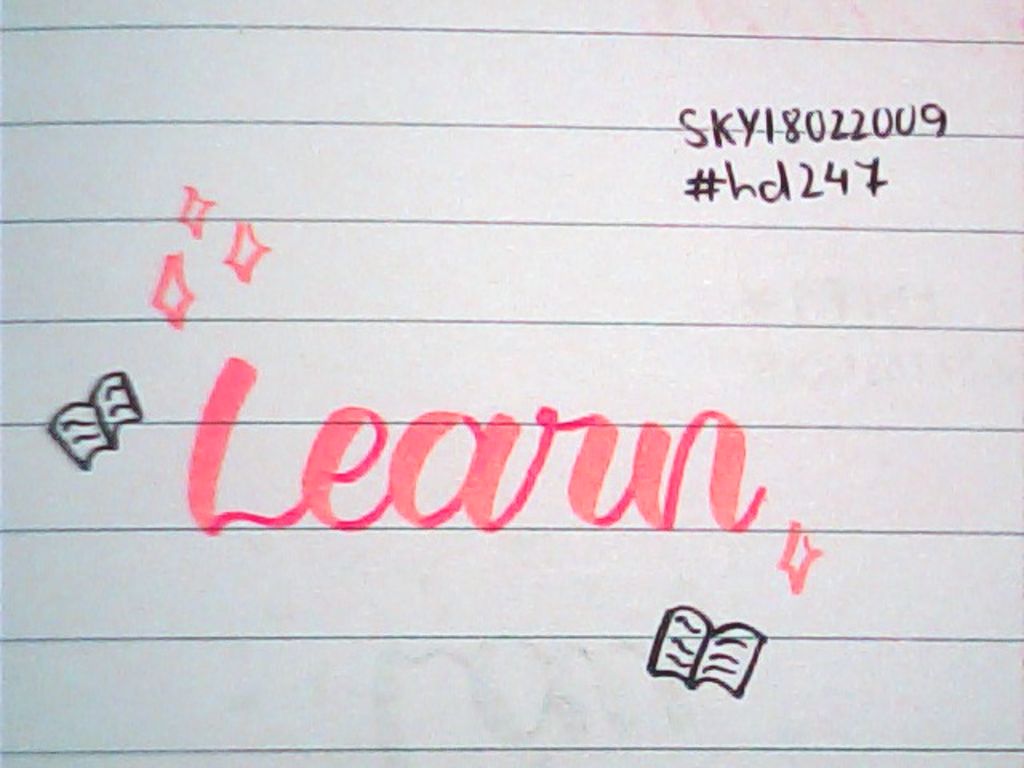 SKY18022009
#hd247
Learn